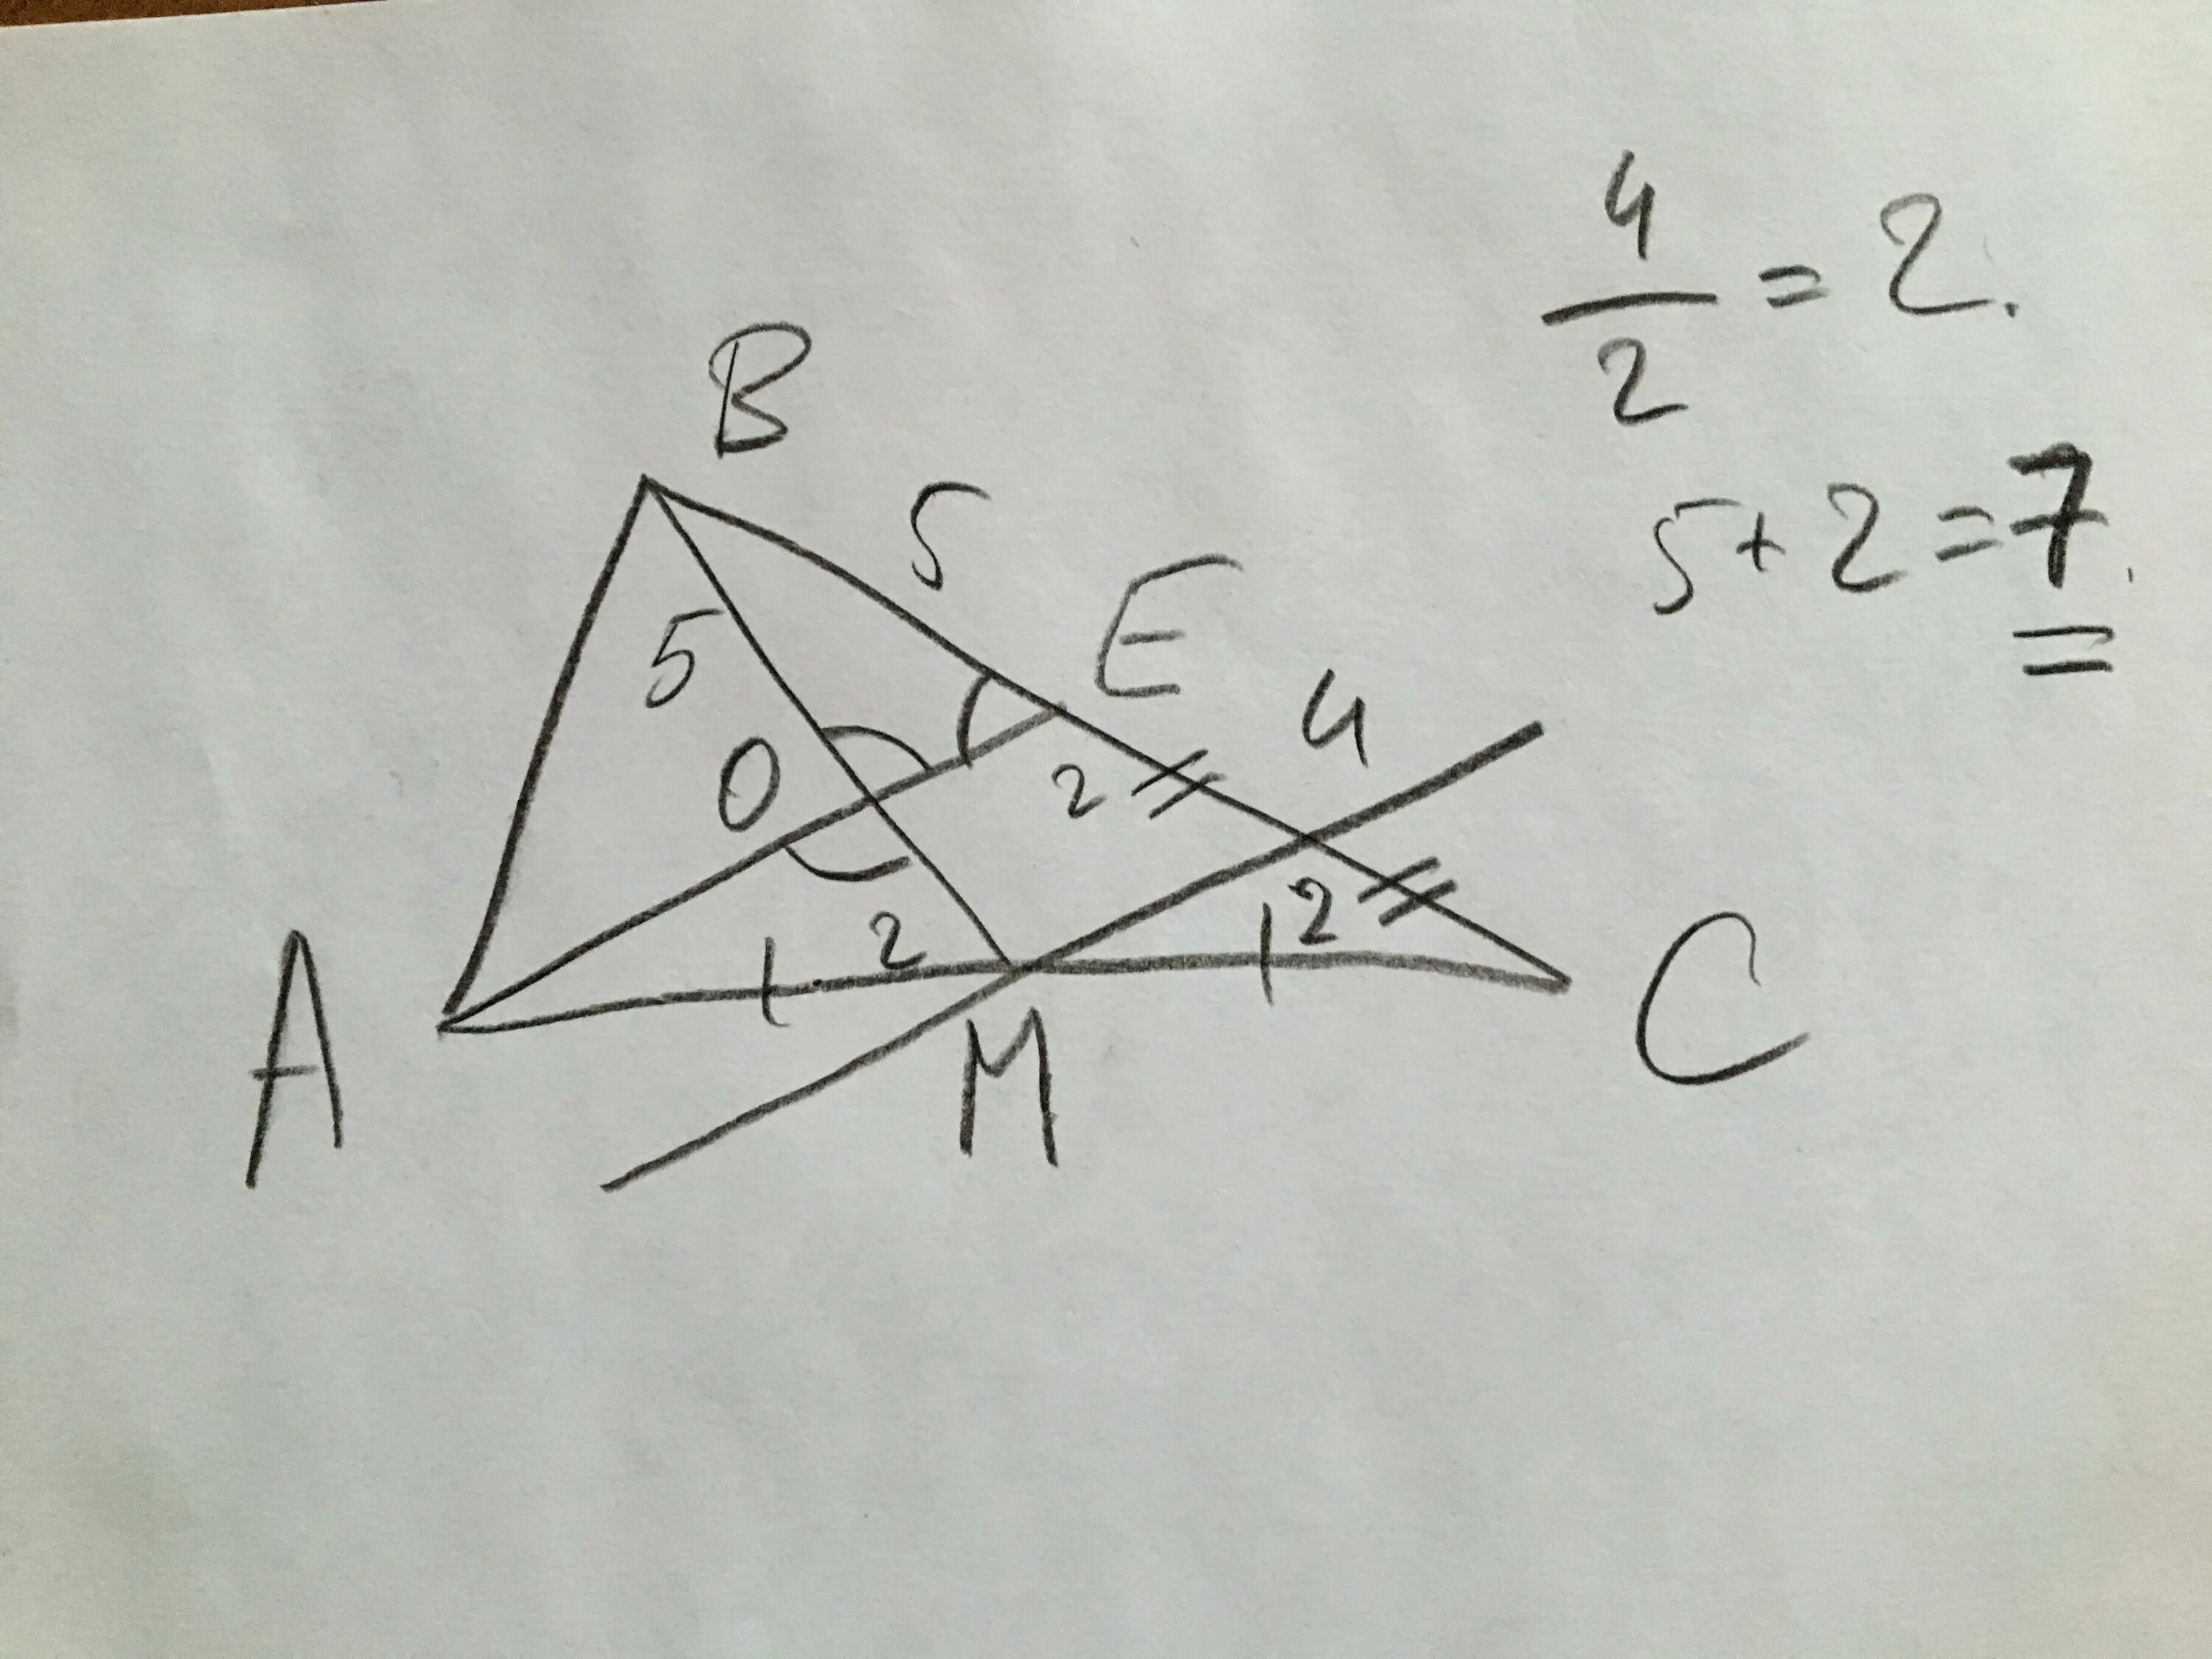 4/2 = 2.
5 + 2 = 7.
B
5
5
E
4
O
2
2
2
A
M
C